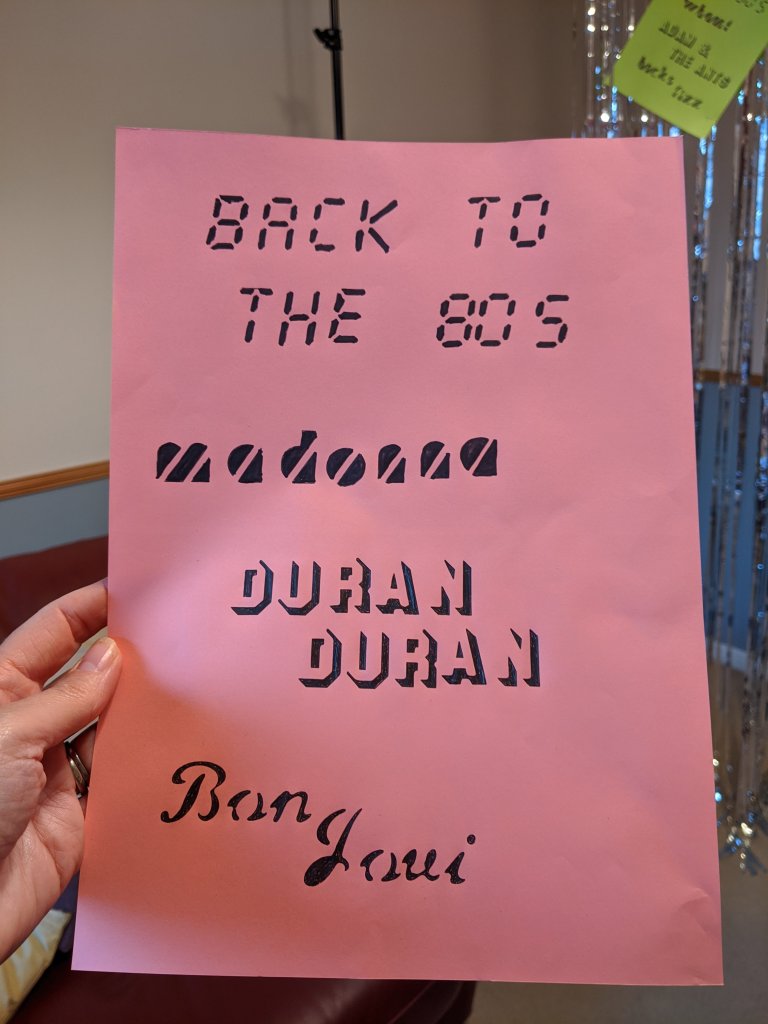 wham!
ADAM &
THE ANTS
bucks
fizz
BACK TO
THE 80S
madonna
DURAN
DURAN
Bon
Jovi